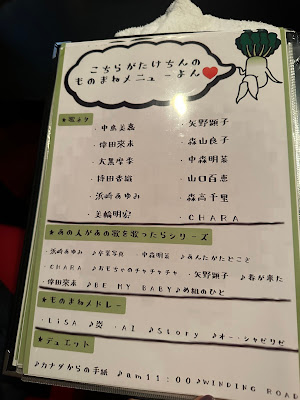 こちらがたけちんの
ものまねメニューよん♥
★歌ネタ
・中島美嘉
・矢野顕子
・倖田來未
・森山良子
・大黒摩季
・中森明菜
・持田香織
・山口百恵
・浜崎あゆみ
・森高千里
・美輪明宏
・CHARA
★あの人があの歌を歌ったらシリーズ
・浜崎あゆみ ♪卒業写真 ・中森明菜 ♪あんたがたどこさ
・CHARA ♪おもちゃのチャチャチャ ・矢野顕子 ♪春が来た
・倖田來未 ♪BE MY BABY♪め組のひと
★ものまねメドレー
・LiSA ♪炎 ・AI ♪Story ♪オー・シャンゼリゼ
★デュエット
♪カナダからの手紙 ♪am11:00♪WINDING ROAD